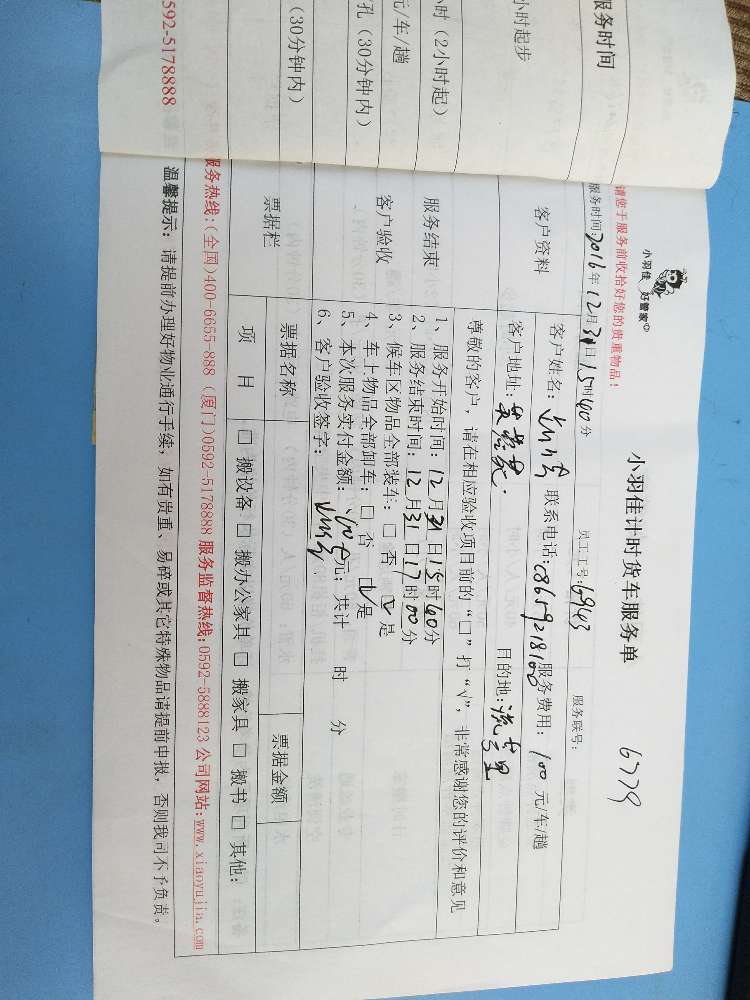 服务时间
小时起步
小时（2小时起）
元/车/趟
孔（30分钟内）
（30分钟内）
0592-5178888
小羽佳 好管家
小羽佳计时货车服务单 6779
请您于服务前收拾好您的贵重物品！
服务时间：2016年12月31日15时40分 员工工号：6943 服务联号：
客户资料
客户姓名： 联系电话： 服务费用：100元/车/趟
客户地址： 目的地：
尊敬的客户，请在相应验收项目前的“□”打“√”，非常感谢您的评价和意见
服务结束
客户验收
1、服务开始时间：12月31日15时40分
2、服务结束时间：12月31日17时00分
3、候车区物品全部装车：□ 否 ☑ 是
4、车上物品全部卸车：□ 否 ☑ 是
5、本次服务实付金额：100元；共计 时 分
6、客户验收签字：
票据栏
票据名称 票据金额
项 目 □ 搬设备 □ 搬办公家具 □ 搬家具 □ 搬书 □ 其他：
服务热线：(全国)400-6655-888 (厦门)0592-5178888 服务监督热线：0592-5888123 公司网站：www.xiaoyujia.com
温馨提示：请提前办理好物业通行手续，如有贵重、易碎或其它特殊物品请提前申报，否则我司不予负责。